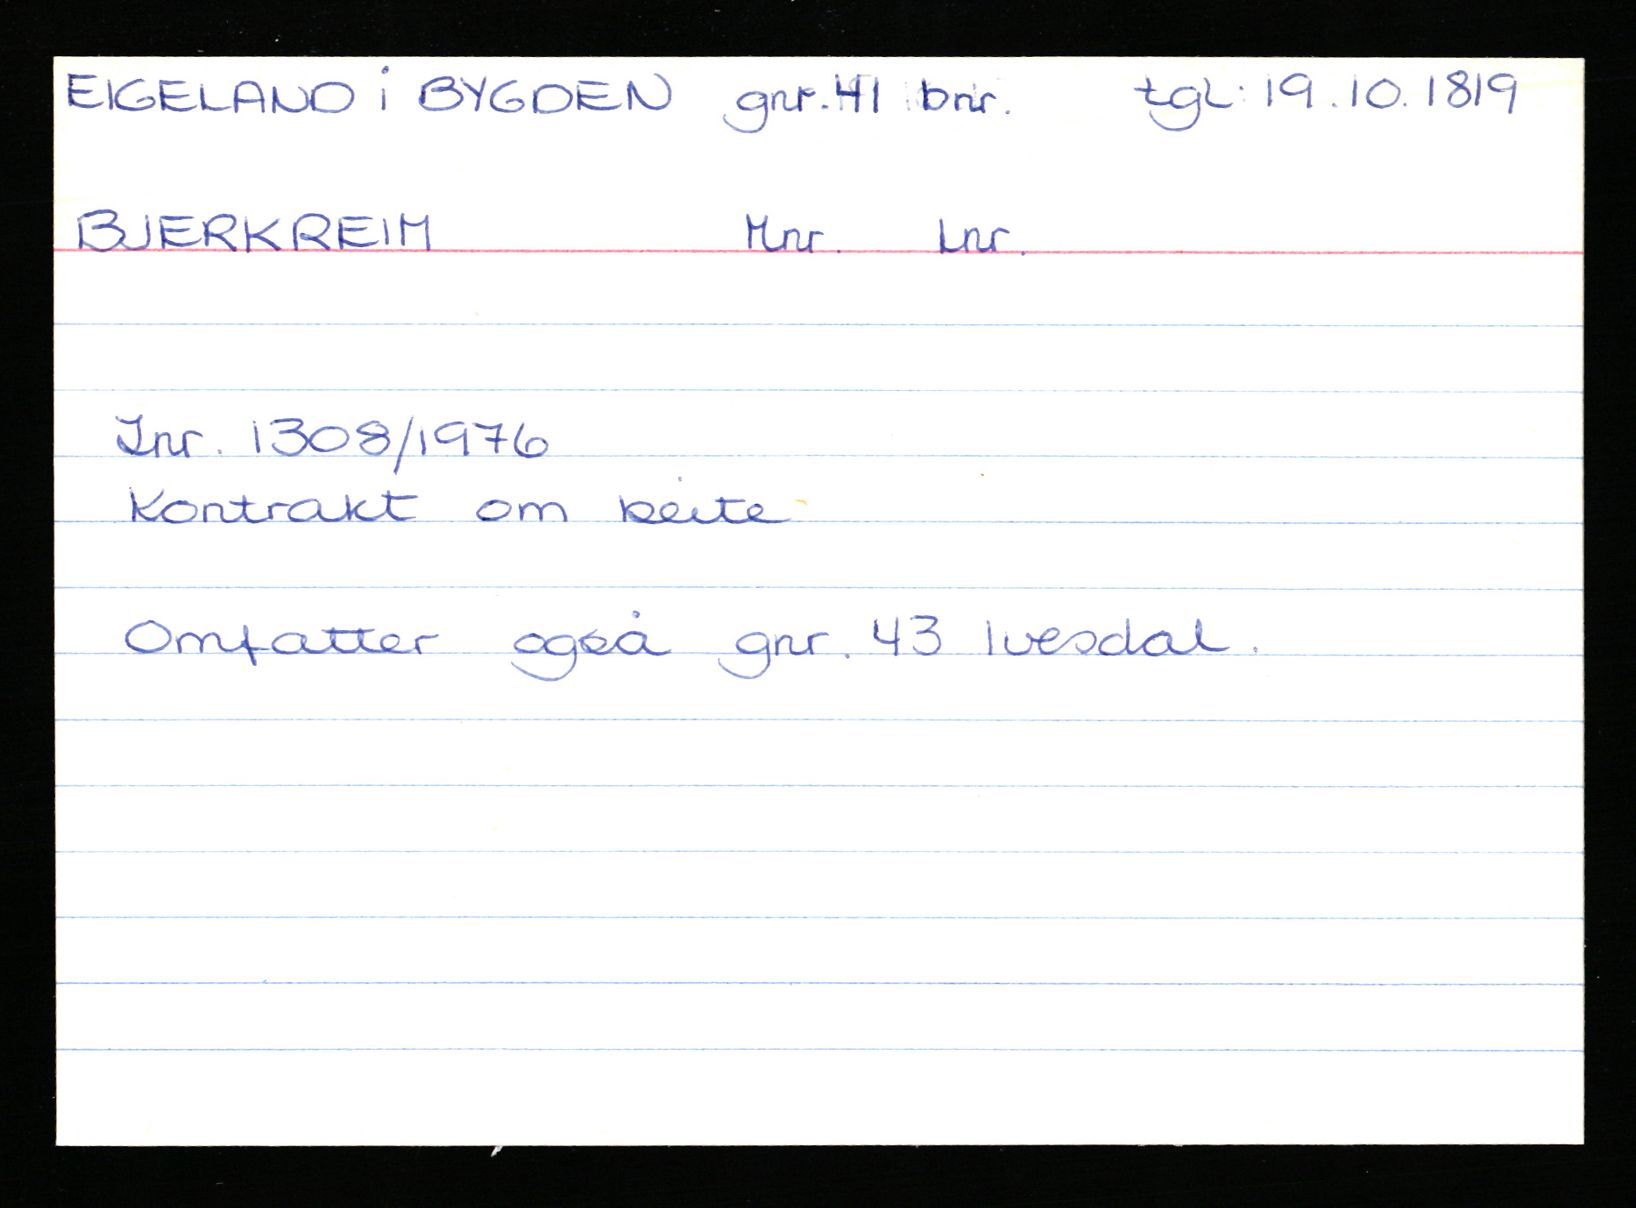 EIGELAND i BYGDEN gnr. 41 bnr. tgl: 19.10.1819
BJERKREIM Mnr. Lnr.
Jnr. 1308/1976
Kontrakt om beite
Omfatter også gnr. 43 Ivesdal.